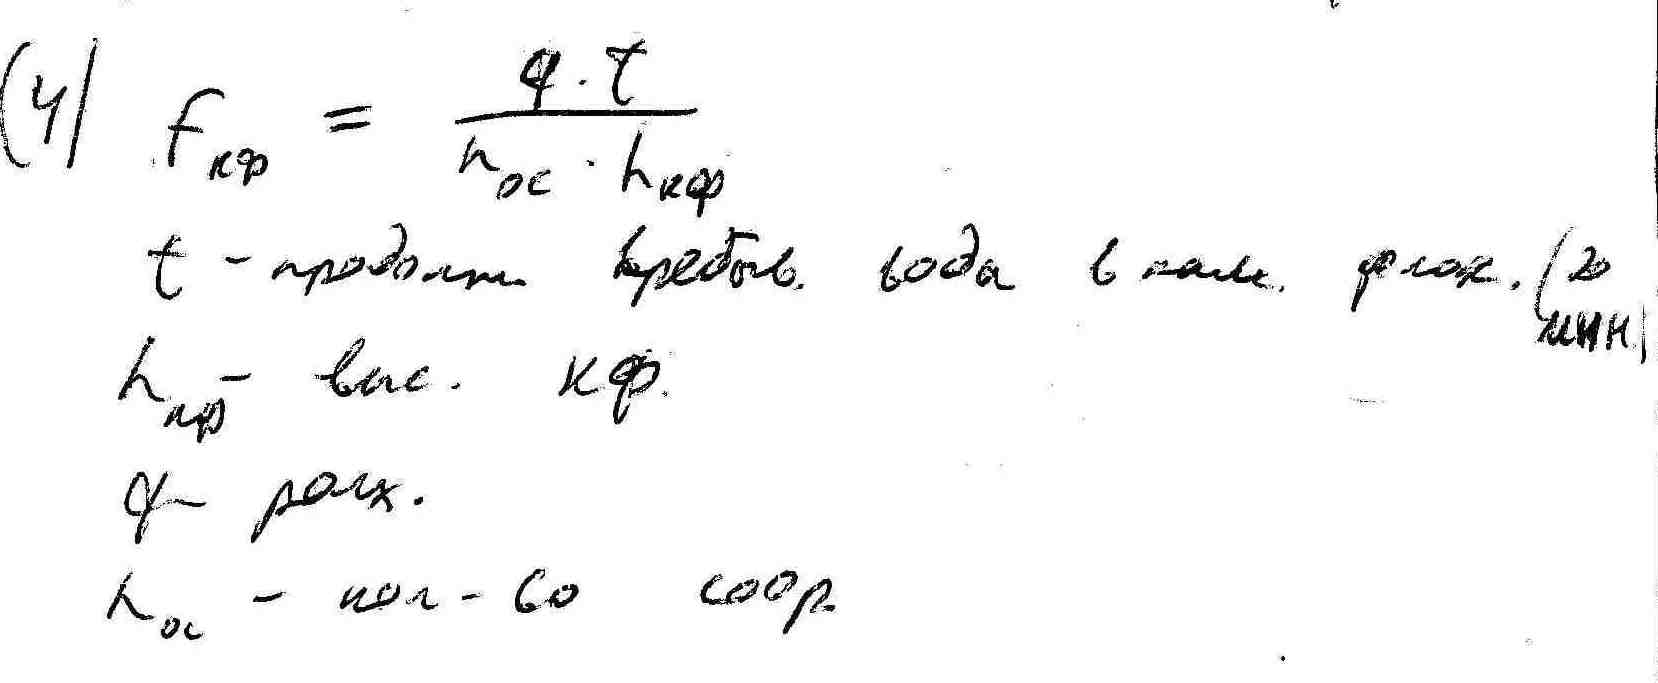 (4) Fкф = q · t / nос · hкф
t - продолж. пребыв. воды в кам. флок. (20 мин)
hкф - выс. кф.
q - расх.
nос - кол-во соор.